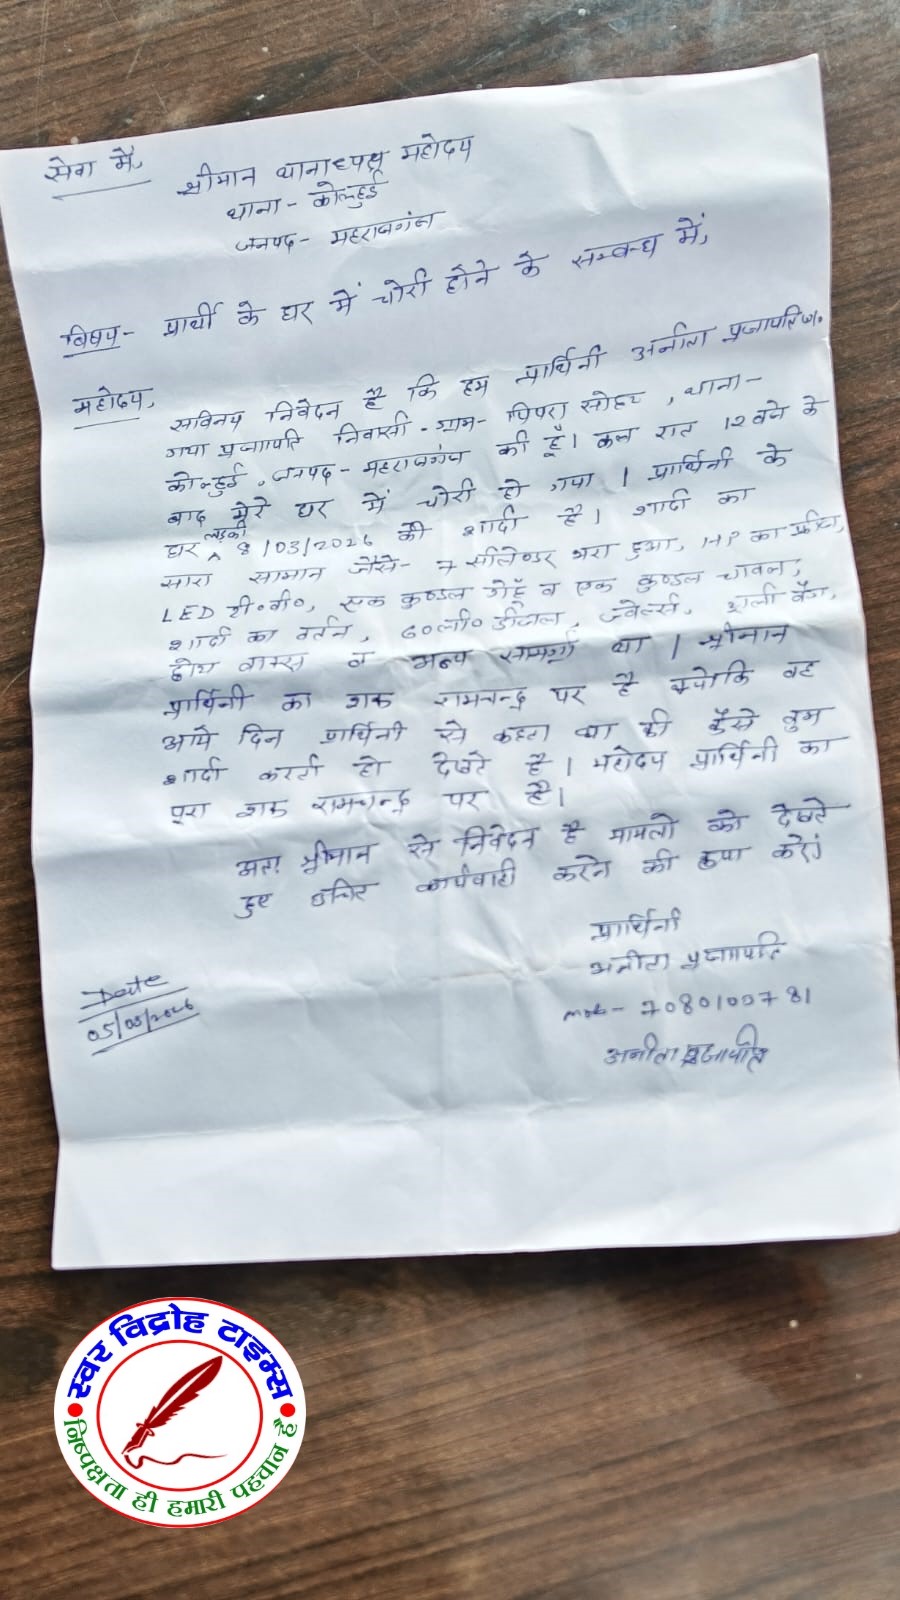 सेवा में,
श्रीमान थानाध्यक्ष महोदय
थाना - कोल्हुई
जनपद - महराजगंज
विषय - प्रार्थी के घर में चोरी होने के सम्बन्ध में,
महोदय,
सविनय निवेदन है कि हम प्रार्थिनी अनीता प्रजापति
गया प्रजापति निवासी - ग्राम - पिपरा सोहट, थाना -
कोल्हुई, जनपद - महराजगंज की हूँ। कल रात 12 बजे के
बाद मेरे घर में चोरी हो गया। प्रार्थिनी के
घर लड़की 8/03/2026 की शादी है। शादी का
सारा सामान जैसे - 7 सीलेण्डर भरा हुआ, का
LED टी०वी०, एक कुण्डल गेहूँ व एक कुण्डल चावल,
शादी का बर्तन, 60ली० डीजल, ज्वेलर्स,
व अन्य सामग्री था। श्रीमान
प्रार्थिनी का शक रामचन्द्र पर है क्योकि वह
आये दिन प्रार्थिनी से कहता था की कैसे तुम
शादी करती हो देखते है। महोदय प्रार्थिनी का
पूरा शक रामचन्द्र पर है।
अतः श्रीमान से निवेदन है मामलो को देखते
हुए उचित कार्यवाही करने की कृपा करें।
प्रार्थिनी
अनीता प्रजापति
mob -
अनीता प्रजापति
Date
05/03/2026
स्वर विद्रोह टाइम्स
निष्पक्षता ही हमारी पहचान है